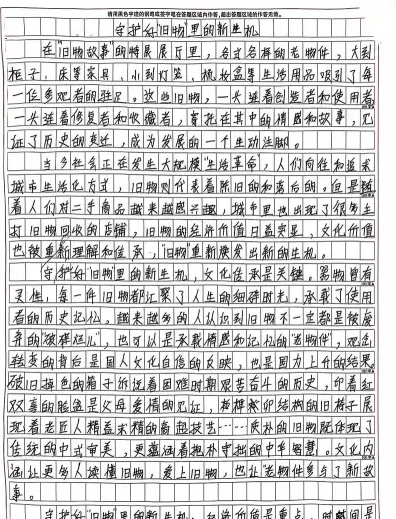 请用黑色字迹的钢笔或签字笔在答题区域内作答,超出答题区域的作答无效。
守护好旧物里的新生机
在"旧物故事"的特展展厅里,各式各样的老物件,大到
柜子、床等家具,小到灯笼、梳妆盒等生活用品吸引了每
一位参观者的驻足。这些旧物,一头连着创造者和使用者
一头连着修复者和收藏者,首批在其中的情感和故事,见
证了历史的变迁,成为发展的一个生动注脚。
当今社会正在发生大规模"生活革命",人们向往和追求
城市生活化方式,旧物则代表着陈旧的和落后的。但是随
着人们对二手商品越来越感兴趣,城市里也出现了很多主
打旧物回收的店铺,旧物的经济价值日益突显、文化价值
也被重新理解和传承,"旧物"重新焕发出新的生机。
守护好旧物里的新生机,文化传承是关键。器物皆有
灵性,每一件旧物都汇聚了人生的细碎时光,承载了使用
者的历史记忆,越来越多的人认识到旧物不一定都是被废
弃的"破铜烂儿",也可以是承载情感和记忆的"老物件",观念
转变的背后是国人文化自信的反映,也是国力上升的结果。
破旧掉色的箱子诉说着困难时期艰苦奋斗的历史,印着红
双喜的脸盆是父母爱情的见证,榫卯结构的旧椅子展
现着老匠人精益求精的高超技艺……质朴的旧物既体现了
传统的中式审美,更蕴涵着抱朴守拙的中华智慧。文化内
涵让更多人读懂旧物,爱上旧物,也让"老物件参与了新故
事。
守护好旧物里的新生机,价值是重点。时间是